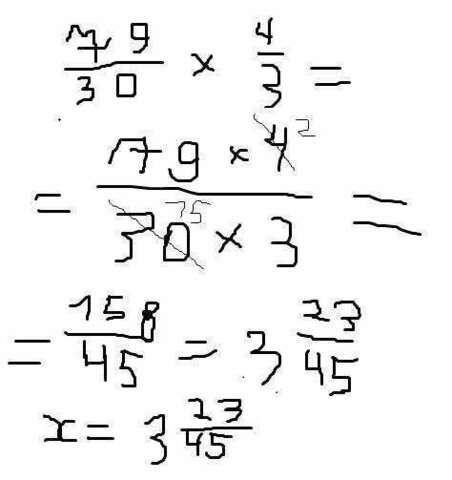 79/30 × 4/3 =
= (79 × 4 2)/(30 15 × 3) =
= 158/45 = 3 23/45
x = 3 23/45